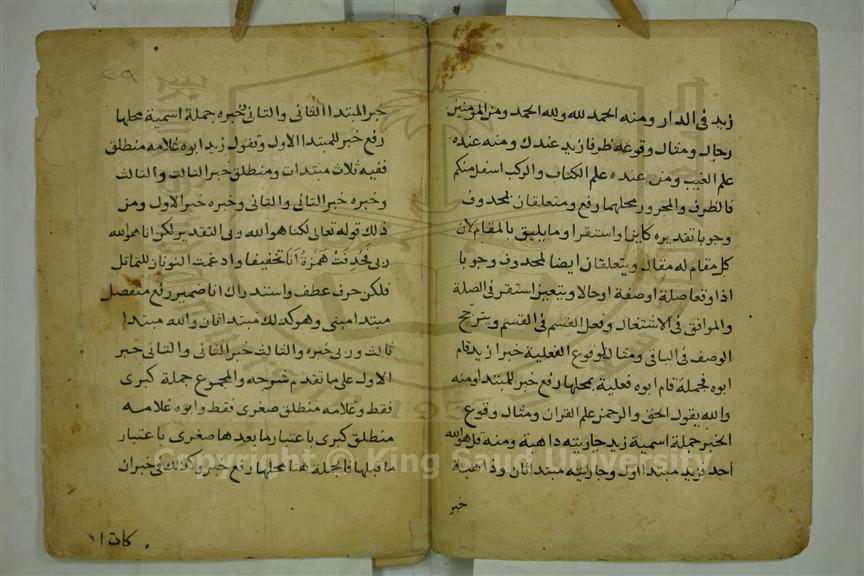 زيد في الدار ومنه الحمد لله ولله الحمد ومن المؤمنين
رجال ومثال وقوعه ظرفا زيد عندك ومنه عنده
علم الغيب ومن عنده علم الكتاب والركب اسفل منكم
فالظرف والمجرور محلهما رفع ومتعلقان بمحذوف
وجوبا تقديره كاين او استقر او ما يليق بالمقام لان
كل مقام له مقال ويتعلقان ايضا لمحذوف وجوبا
اذا وقعا صلة او صفة او حالا ويتعين استقر في الصلة
والموافق في الاشتغال وفعل القسم في القسم ويترجح
الوصف في الباقي ومثال الوقوع الفعلية خبرا زيد قام
ابوه فجملة قام ابوه فعلية محلها رفع خبر للمبتدا ومنه
والله يقول الحق والرحمن علم القران ومثال وقوع
الخبر جملة اسمية زيد جاريته ذاهبة ومنه قل هو الله
احد فزيد مبتدا اول وجاريته مبتدا ثان وذاهبة
خبر
خبر المبتدا الثاني والثاني وخبره جملة اسمية محلها
رفع خبر للمبتدا الاول وتقول زيد ابوه غلامه منطلق
ففيه ثلاث مبتدات ومنطلق خبر الثالث والثالث
وخبره خبر الثاني والثاني وخبره خبر الاول ومن
ذلك قوله تعالى لكنا هو الله ربي التقدير لكن انا هو الله
ربي فحذفت همزة انا تخفيفا وادغمت النونان للتماثل
فلكن حرف عطف واستدراك انا ضمير رفع منفصل
مبتدا مبني وهو كذلك مبتدا ثان والله مبتدا
ثالث وربي خبره والثالث خبر الثاني والثاني خبر
الاول على ما تقدم شرحه والمجموع جملة كبرى
فقط وغلامه منطلق صغرى فقط وابوه غلامه
منطلق كبرى باعتبار ما بعدها صغرى باعتبار
ما قبلها فالجملة هنا محلها رفع خبر وكذلك في خبر ان
Copyright © King Saud University